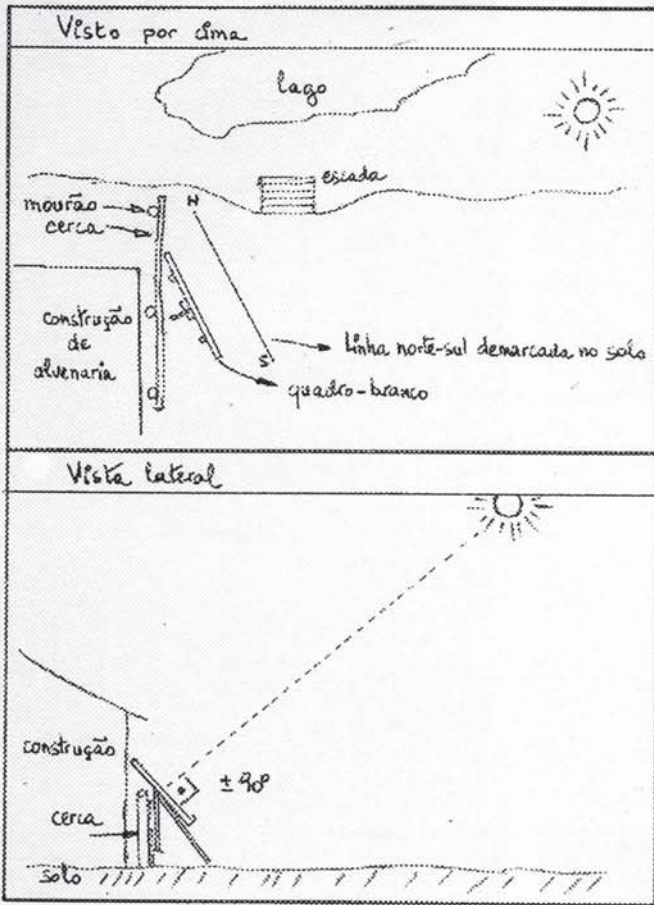 Visto por cima
lago
escada
mourão
cerca
N
construção
de
alvenaria
S
linha norte-sul demarcada no solo
quadro-branco
Vista lateral
construção
± 90º
cerca
solo